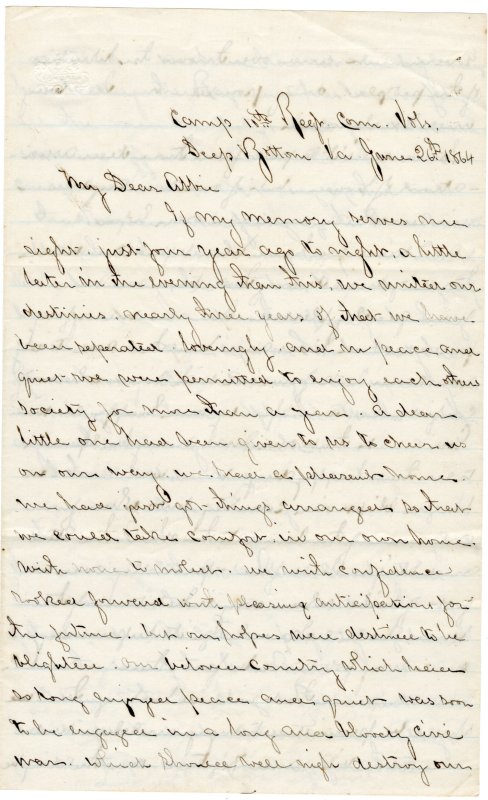 Camp 11th Regt. Con. Vols.
Deep Bottom Va June 26th 1864
My Dear Abbie
If my memory serves me
right. just four year ago to night. a little
later in the evening than this. we united our
destinies. nearly three years of that we have
been separated. lovingly and in peace and
quiet we were permitted to enjoy each others
society for more than a year. a dear
little one had been given to us to cheer us
on our way. we had a pleasant home.
we had just got things arranged so that
we could take comfort. in our own home.
with none to molest. we with confidence
looked forward with pleasing anticipations for
the future. but our hopes were destined to be
blighted. our beloved country which had
so long enjoyed peace and quiet was soon
to be engaged in a long and bloody civil
war. which should well nigh destroy our